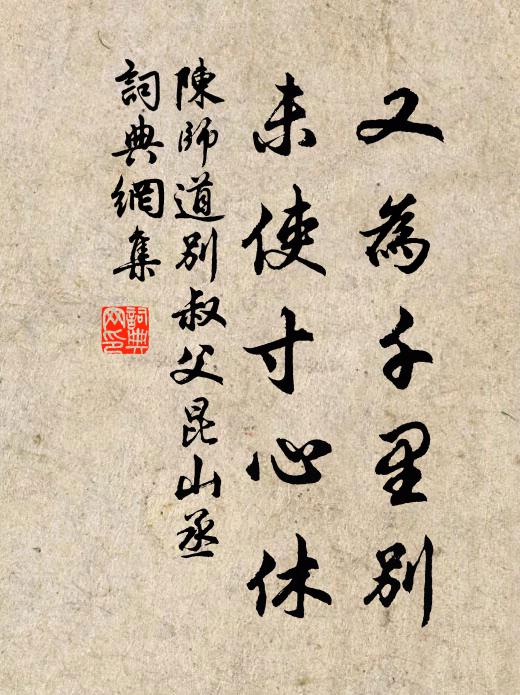 又為千里别
未使寸心休
陳師道别叔父昆山丞
詞典網集
詞典網印